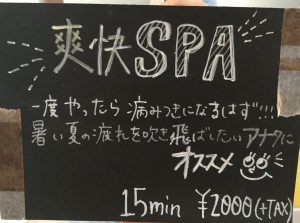 爽快SPA
一度やったら病みつきになるはず!!!
暑い夏の疲れを吹き飛ばしたいアナタに
オススメ
15min ¥2000(+TAX)